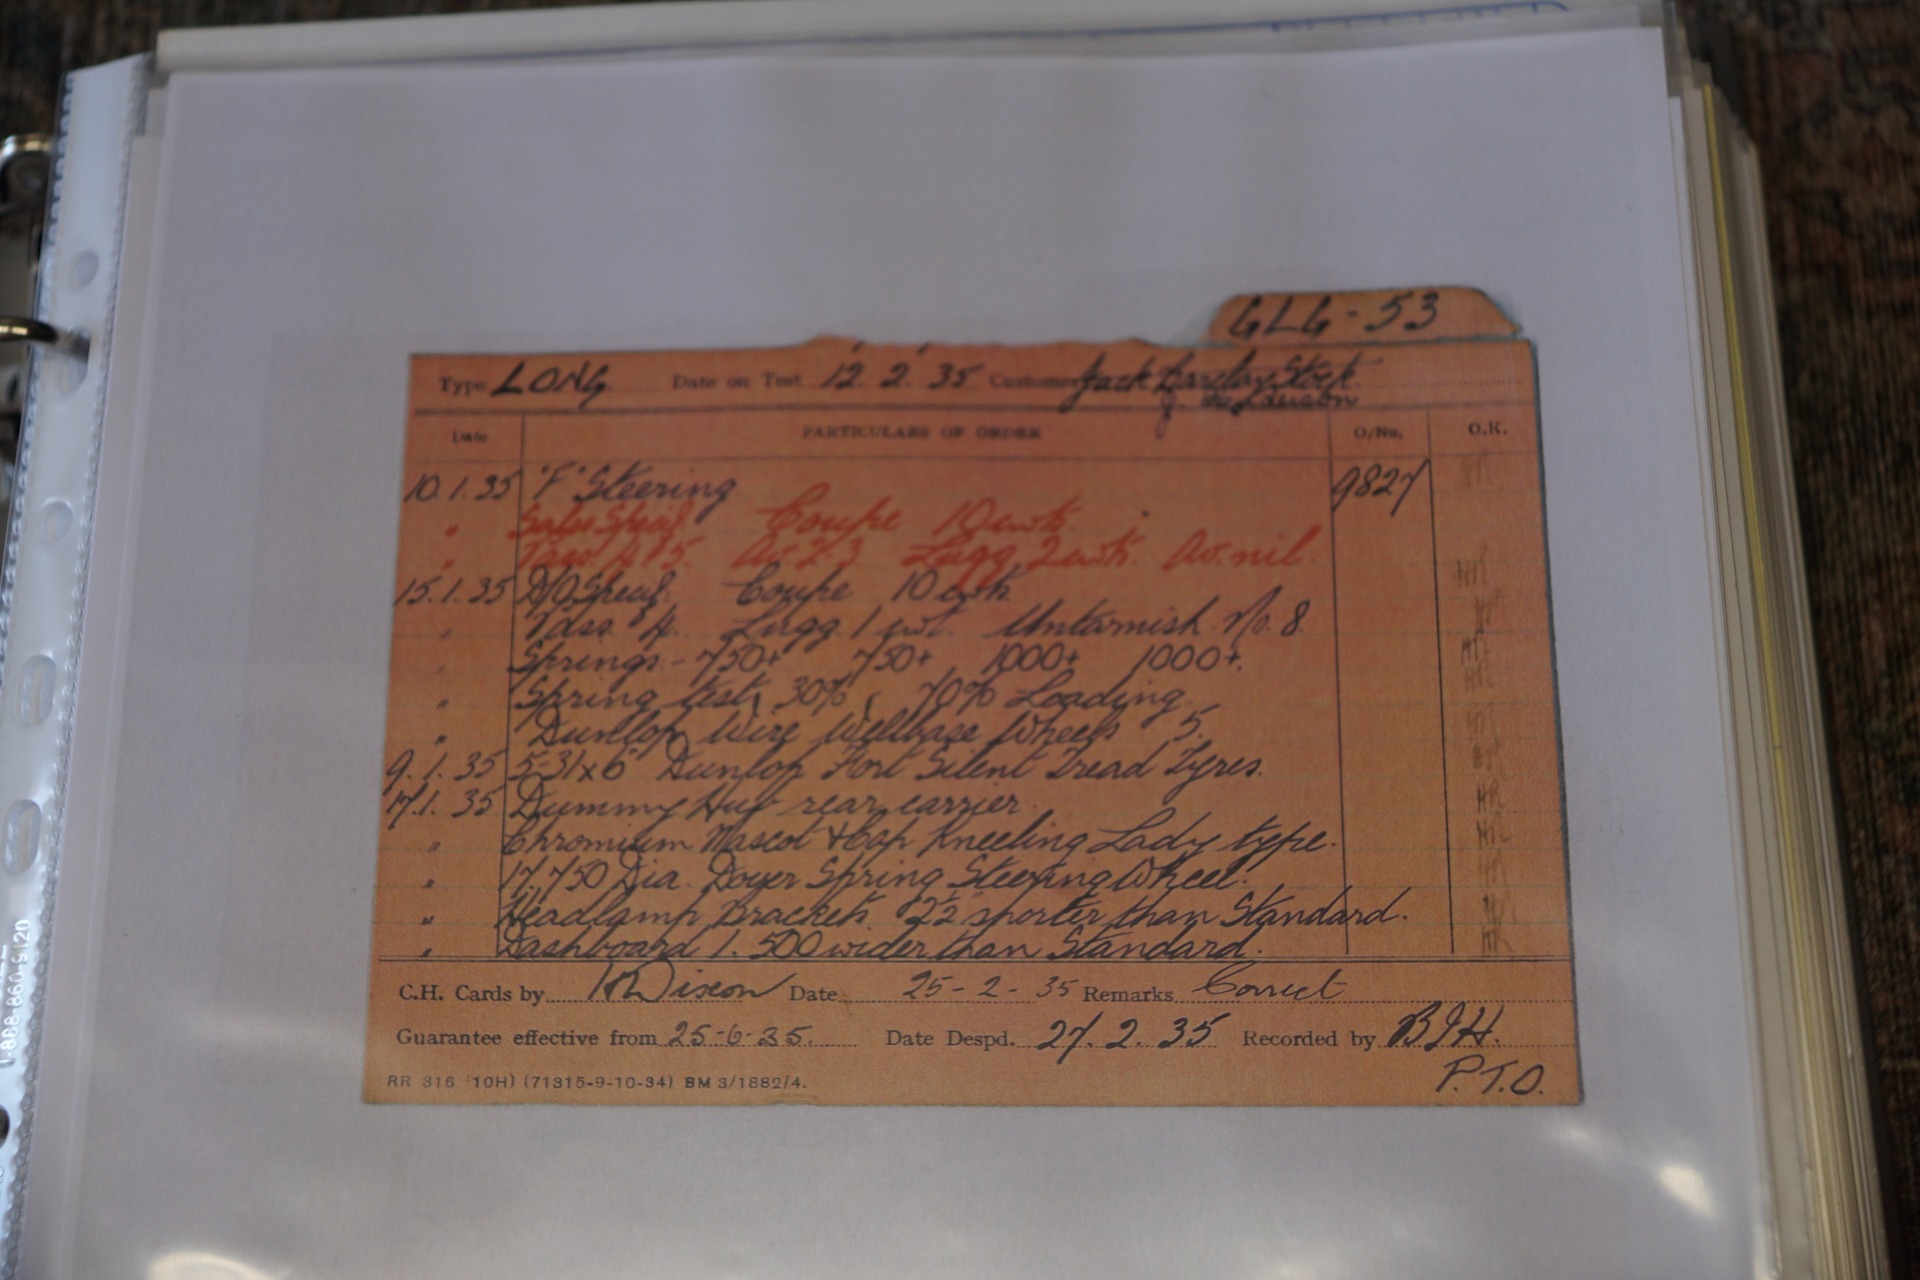 GLG-53
Type LONG Date on Test 12. 2. 35 Customer Jack Barclay Stock.
J.
Date PARTICULARS OF ORDER O/No. O.K.
10.1.35 "F" Steering 9827
" Sales Specif. Coupe 10 cwts.
" Pass A 5. Av. 2.3 Lugg. 2 cwts. Av. nil.
15.1.35 D/O Specif. Coupe 10 cwts
" Pass 4. Lugg. 1 cwt. Untarnish. No. 8.
Springs:- 750+ 750+ 1000+ 1000+.
" Spring test, 30% 70% Loading.
" Dunlop Wire Wellbase Wheels 5.
9.1.35 5-31x6" Dunlop Fort Silent Tread Tyres.
17.1.35 Dummy Hub rear carrier.
" Chromium Mascot & Cap Kneeling Lady type.
" 17.750 Dia. Dover Spring Steering Wheel.
" Headlamp Brackets. 2½" shorter than Standard.
" Dashboard 1.500 wider than Standard.
C.H. Cards by Dixon Date 25-2-35 Remarks Correct
Guarantee effective from 25-6-35. Date Despd. 27.2.35 Recorded by BJH.
P.T.O.
RR 316 (10H) (71315-9-10-34) BM 3/1882/4.
1-888-860-9120